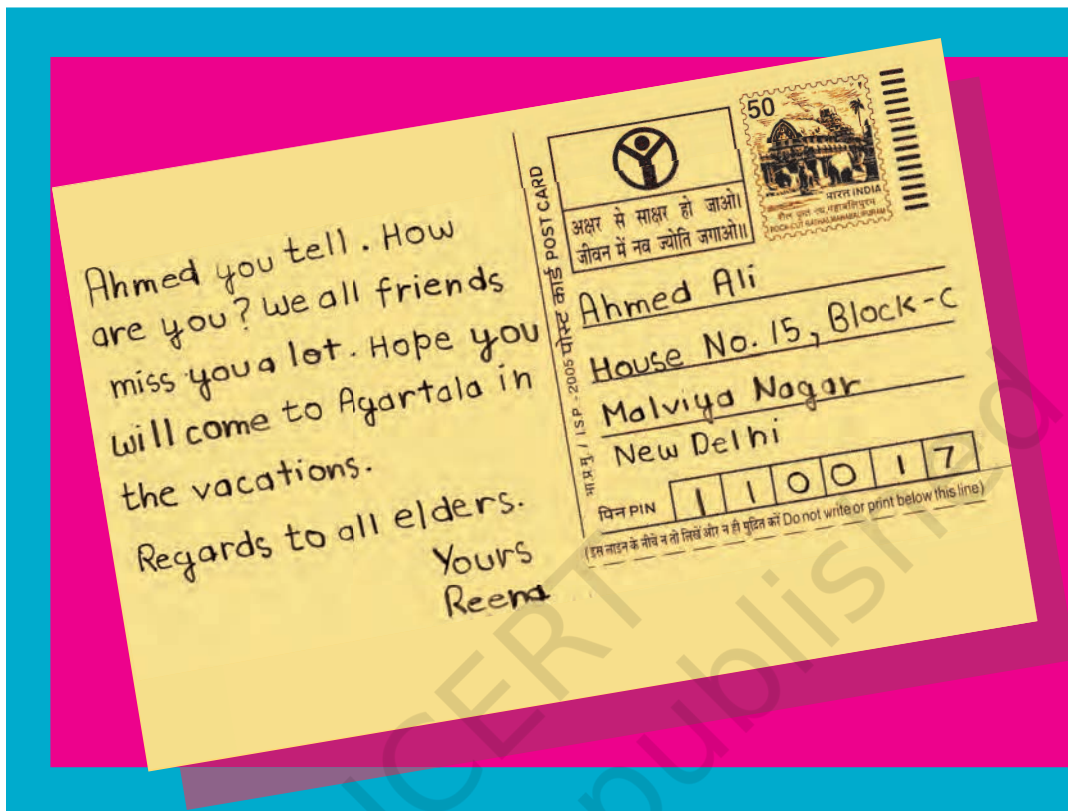 Ahmed you tell. How
are you? We all friends
miss you a lot. Hope you
will come to Agartala in
the vacations.
Regards to all elders.
Yours
Reena
भा.प्र.मु. / ISP-2005 पोस्ट कार्ड POST CARD
अक्षर से साक्षर हो जाओ।
जीवन में नव ज्योति जगाओ॥
50
भारत INDIA
ROCK-CUT RATHA, MAHABALIPURAM
Ahmed Ali
House No. 15, Block-C
Malviya Nagar
New Delhi
पिन PIN 110017
(इस लाइन के नीचे न तो लिखें और न ही मुद्रित करें Do not write or print below this line)
NCERT
published